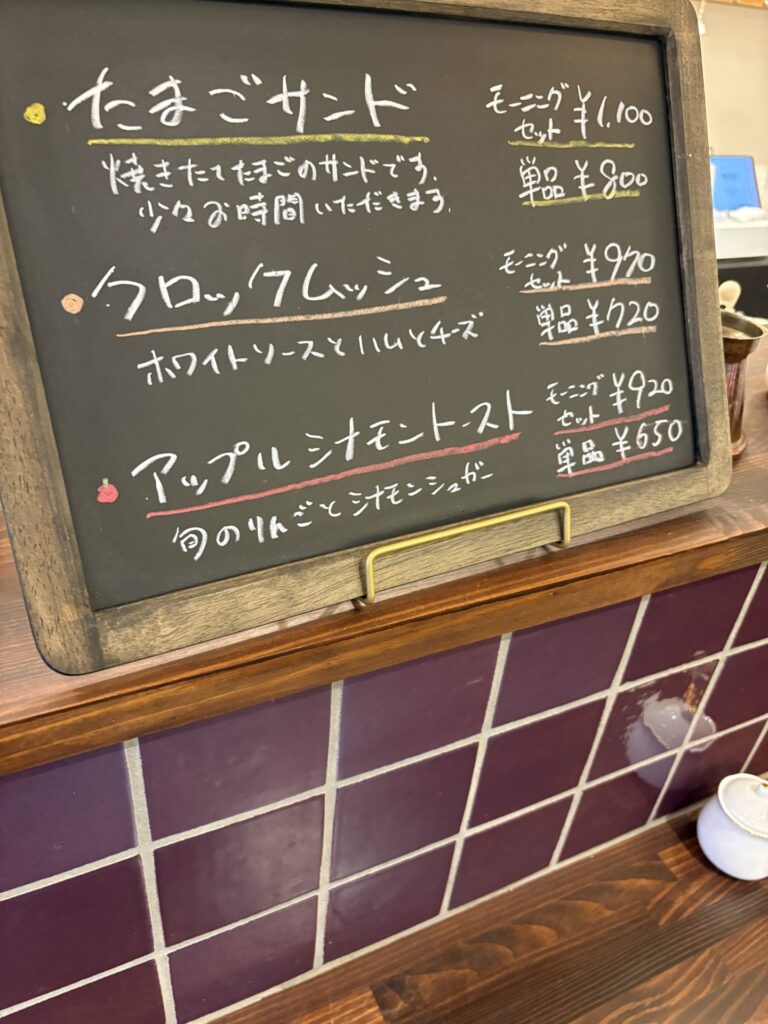 たまごサンド
モーニング
セット ¥1,100
焼きたてたまごのサンドです。
単品 ¥800
少々お時間いただきます。
クロックムッシュ
モーニング
セット ¥970
単品 ¥720
ホワイトソースとハムとチーズ
アップルシナモントースト
モーニング
セット ¥920
単品 ¥650
旬のりんごとシナモンシュガー